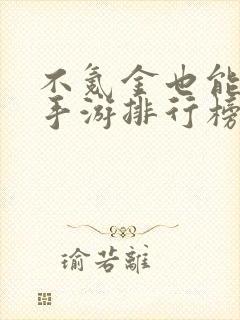 不氪金也能
手游排行榜
瑜若離